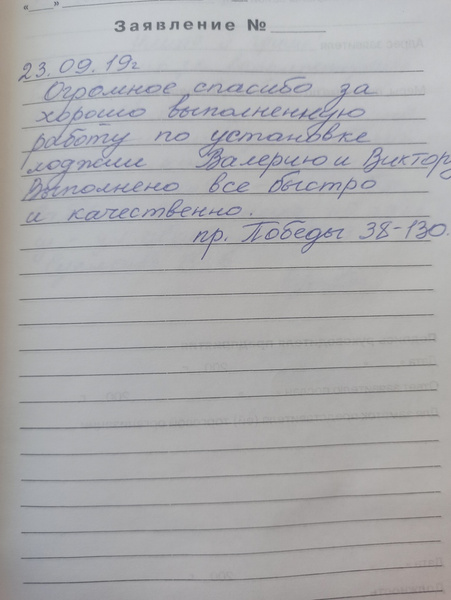 "___" ________
Заявление № ______
23.09.19г
Огромное спасибо за
хорошо выполненную
работу по установке
лоджии Валерию и Виктору
Выполнено все быстро
и качественно.
пр. Победы 38-130.